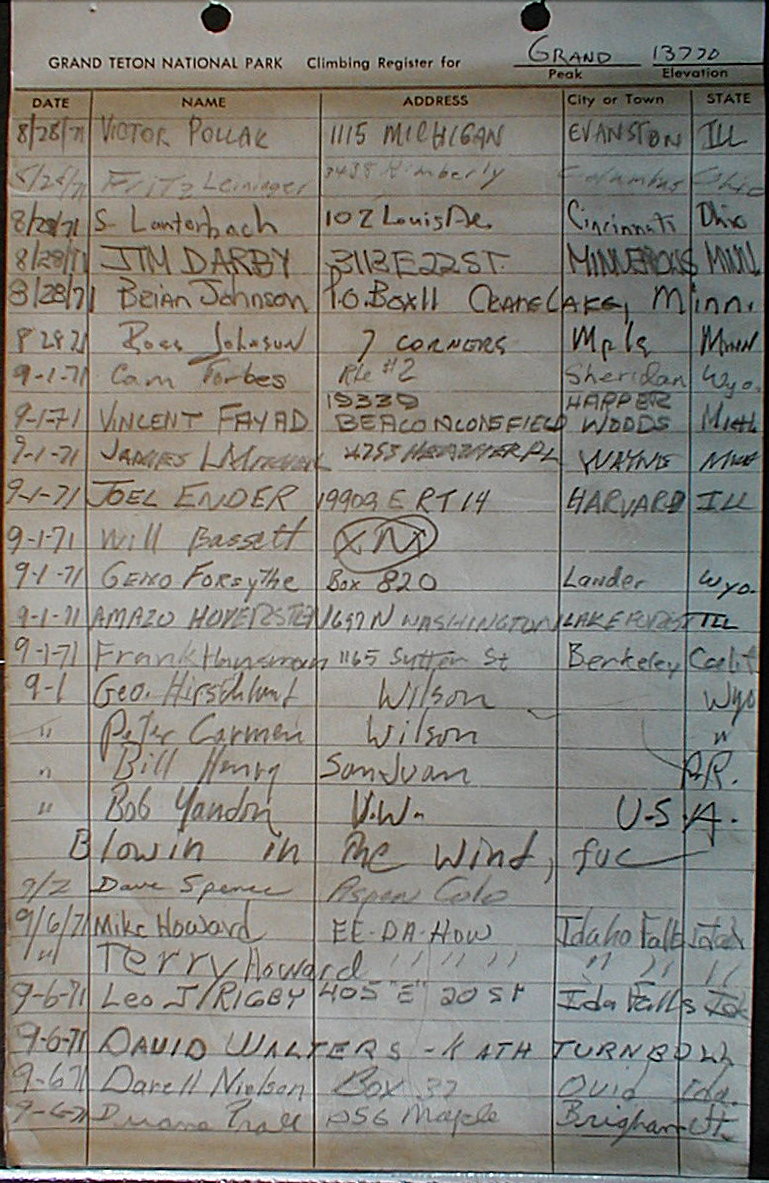 GRAND TETON NATIONAL PARK Climbing Register for GRAND 13770
Peak Elevation
DATE NAME ADDRESS City or Town STATE
8/28/71 VICTOR POLLAK 1115 MICHIGAN EVANSTON ILL
Fritz Leininger Kimberly Columbus Ohio
8/28/71 S Lauterbach 107 Louis Cincinnati Ohio
8/28/71 JIM DARBY 3113 E 22 ST. MINN
8/28/71 Brian Johnson P.O. Box 11 CRANE LAKE, Minn.
8 28 71 Ross Johnson 7 CORNERS Mpls MINN
9-1-71 Cam Forbes Rte #2 Sheridan Wyo.
19339 HARPER
9-1-71 VINCENT FAYAD BEACONCONSFIELD WOODS Mich
9-1-71 JAMES L 4753 PL WAYNE Mich
9-1-71 JOEL ENDER 19909 E RT 14 HARVARD ILL
9-1-71 Will Bassett XM
9-1-71 Forsythe Box 820 Lander Wyo.
9-1-71 1697 N WASHINGTON LAKE FOREST ILL
9-1-71 Frank 1165 Sutter St Berkeley Calif
9-1 Geo. Wilson Wyo
" Peter Carmen Wilson "
" Bill Henry San Juan P.R.
" Bob Yandon V.W. U.S.A.
Blowin in the wind, fuc
9/2 Dave Spence Aspen Colo
9/6/71 Mike Howard EE-DA-HOW Idaho Falls Idaho
" Terry Howard " " " " " " "
9-6-71 Leo J RIGBY 405 "E" 20 St Ida Falls Ida
9-6-71 DAVID WALTERS - KATH TURNBOW
9-6-71 Darell Nielson Box 37 Ovid Ida.
9-6-71 Duane Maple Brigham Ut.